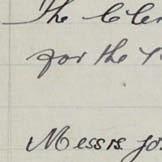 The Cler
for the
Messrs. Jo